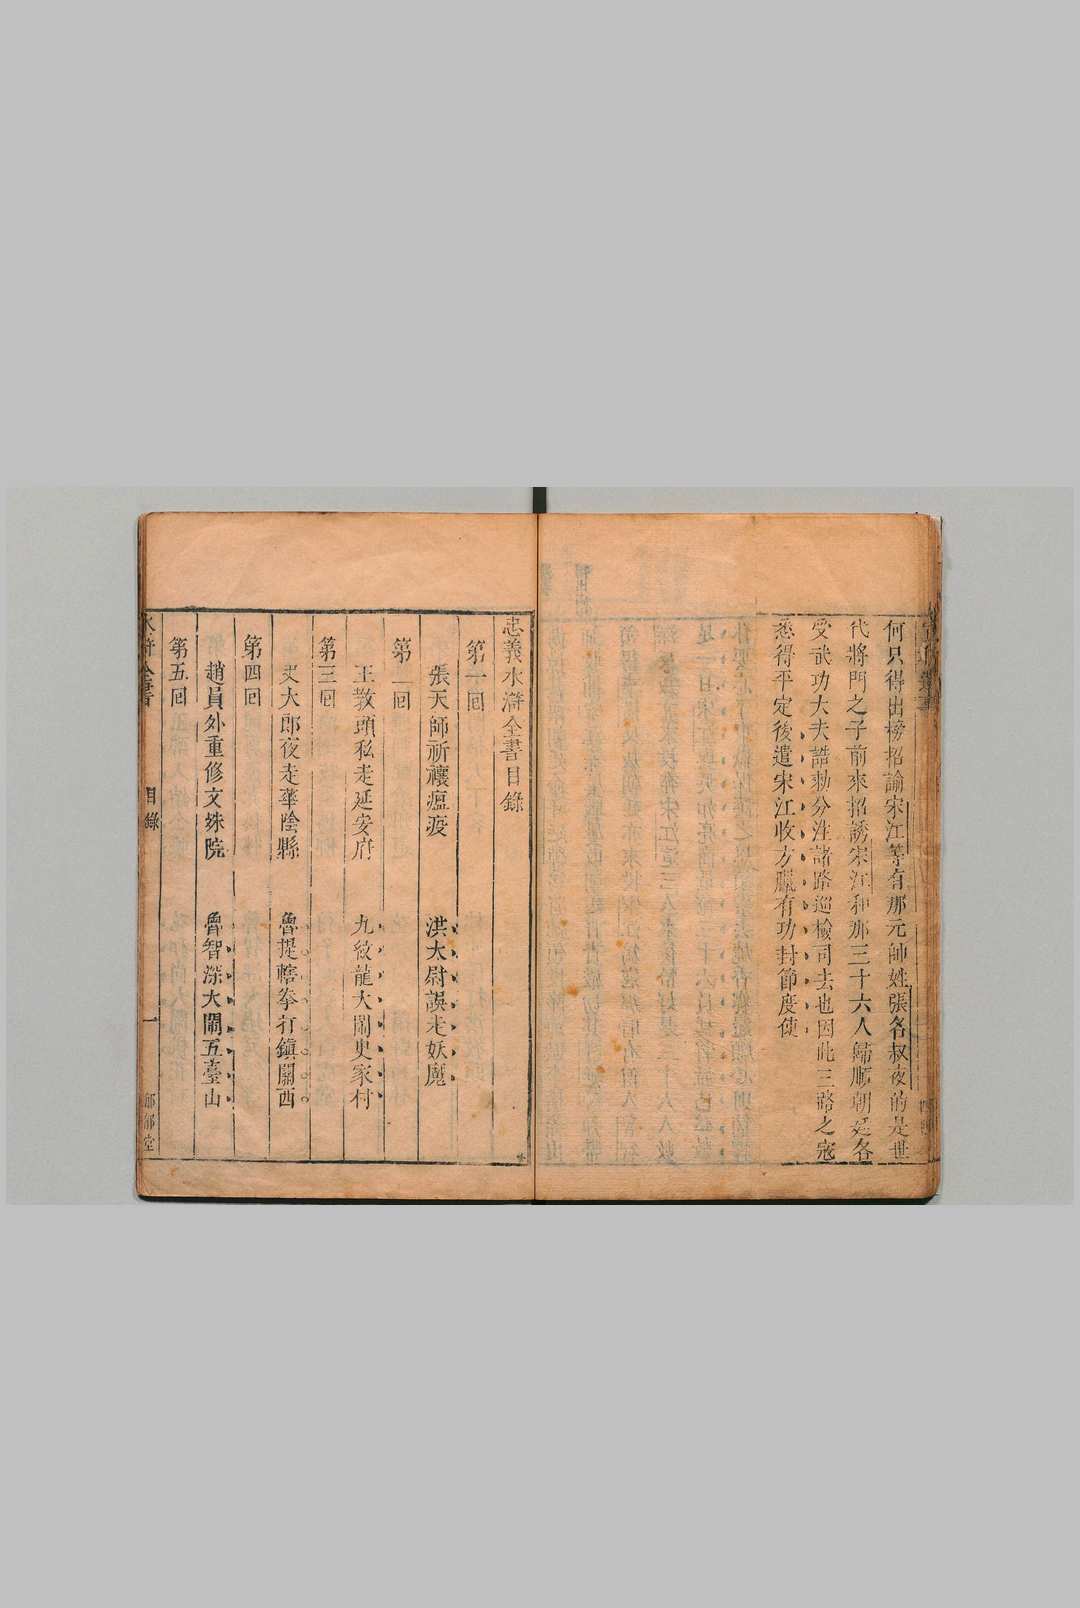 何只得出榜招諭宋江等有那元帥姓張名叔夜的是世
代將門之子前來招誘宋江和那三十六人歸順朝廷各
受武功大夫誥勅分注諸路巡檢司去也因此三路之寇
悉得平定後遣宋江收方臘有功封節度使
忠義水滸全書目錄
第一回
張天師祈禳瘟疫 洪太尉誤走妖魔
第二回
王教頭私走延安府 九紋龍大鬧史家村
第三回
史大郎夜走華陰縣 魯提轄拳打鎮關西
第四回
趙員外重修文殊院 魯智深大鬧五臺山
第五回
水滸全書 目錄 一 郁郁堂